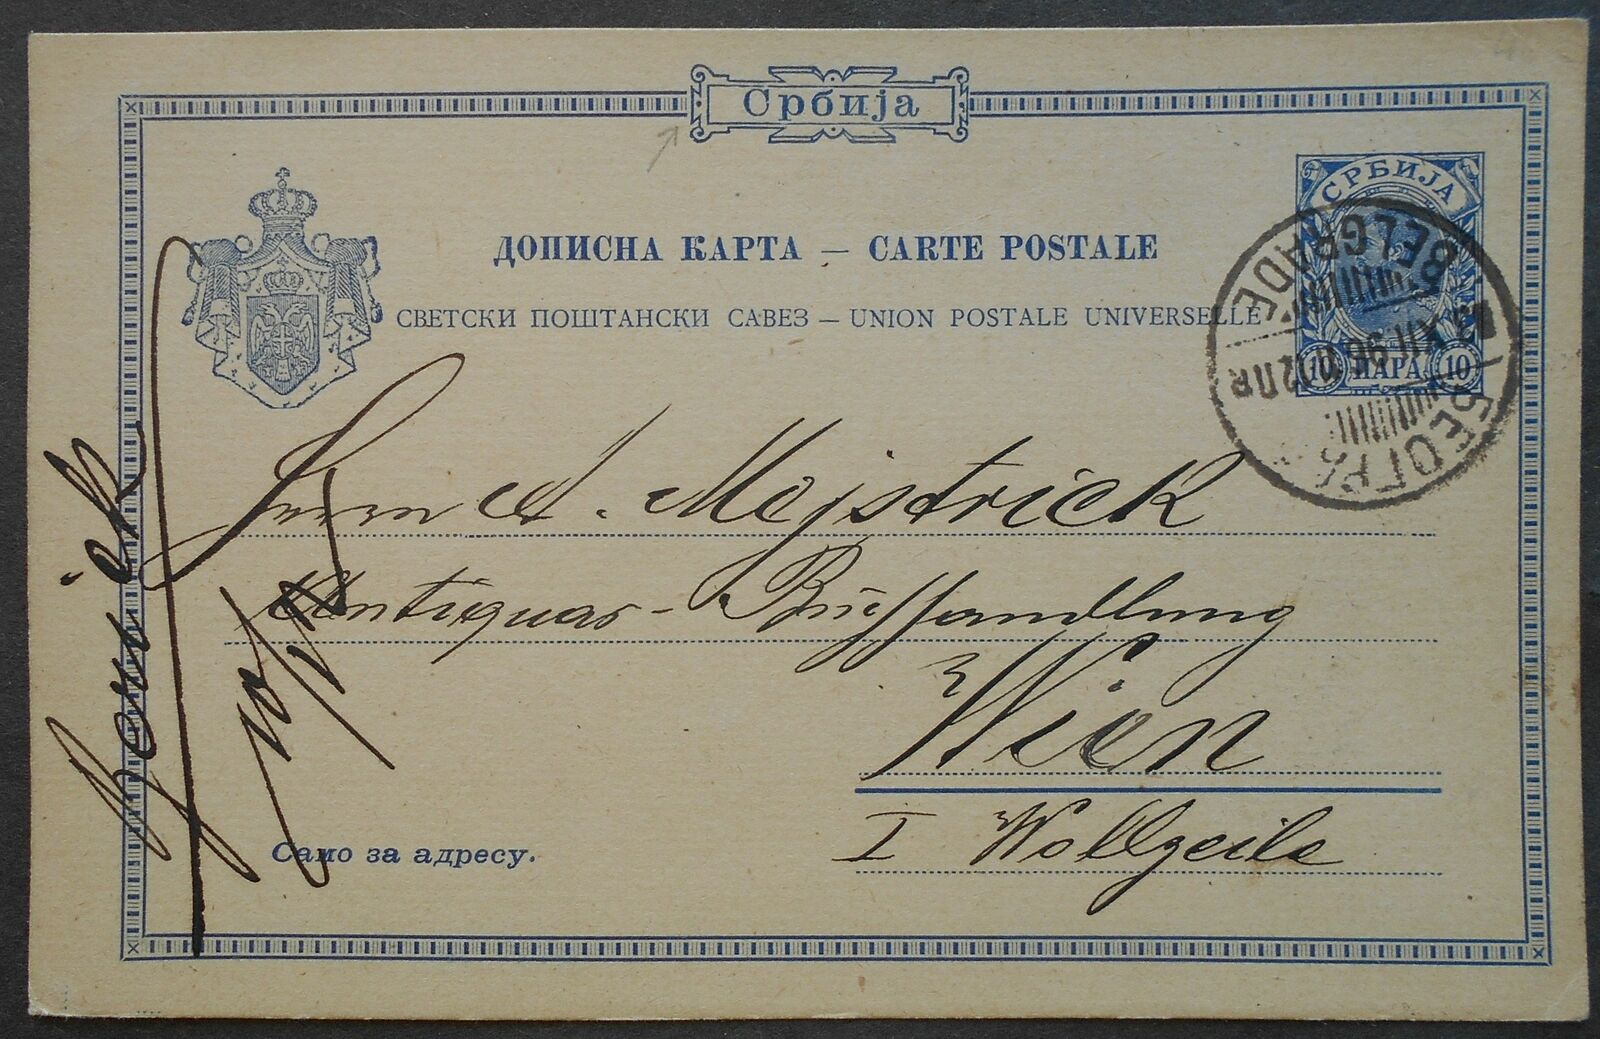 Србија
СРБИЈА
ДОПИСНА КАРТА — CARTE POSTALE
СВЕТСКИ ПОШТАНСКИ САВЕЗ — UNION POSTALE UNIVERSELLE
10 ПАРА 10
BELGRADE
XII 96
БЕОГРА
Herrn A. Mejstrick
Antiquar-Buchhandlung
Wien
I Wollzeile
Само за адресу.